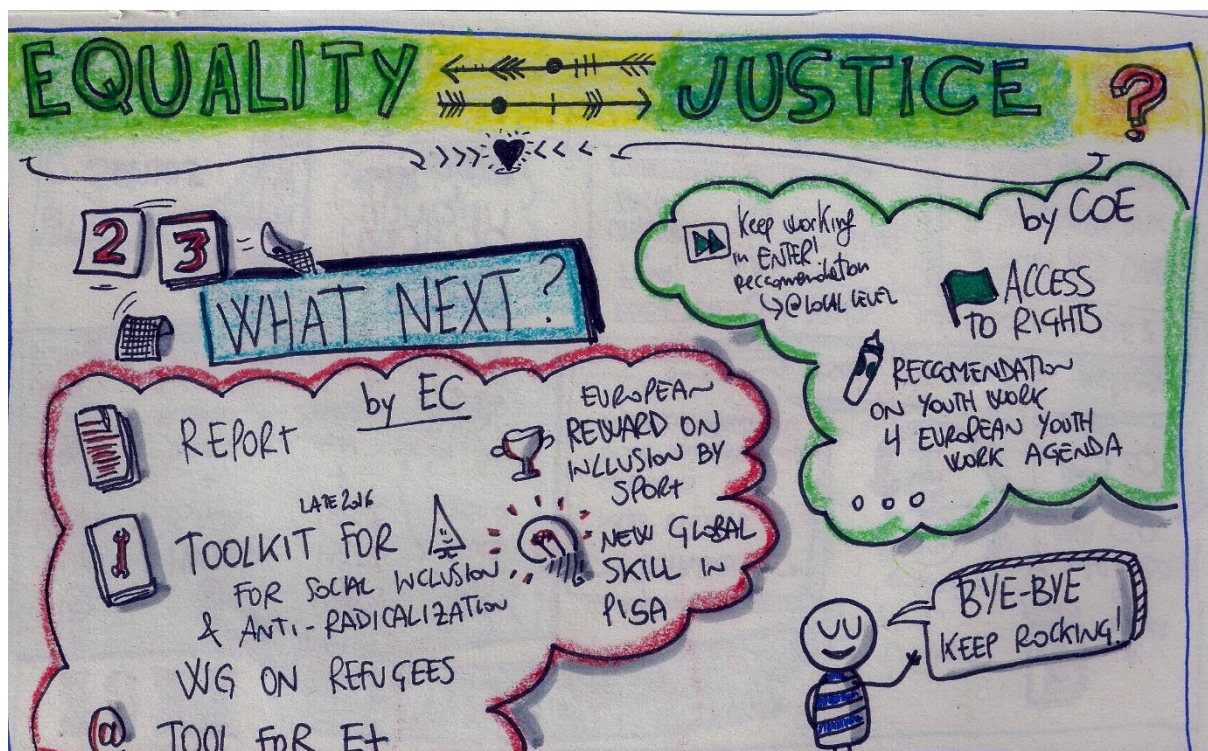 EQUALITY JUSTICE ?
2 3
WHAT NEXT?
by EC
REPORT
LATE 2016
TOOLKIT FOR
FOR SOCIAL INCLUSION
& ANTI-RADICALIZATION
WG ON REFUGEES
@ TOOL FOR E+
EUROPEAN
REWARD ON
INCLUSION BY
SPORT
NEW GLOBAL
SKILL IN
PISA
by COE
Keep working
in ENTER!
reccomendation
@ LOCAL LEVEL
ACCESS
TO RIGHTS
RECCOMENDATION
ON YOUTH WORK
4 EUROPEAN YOUTH
WORK AGENDA
...
BYE-BYE
KEEP ROCKING!